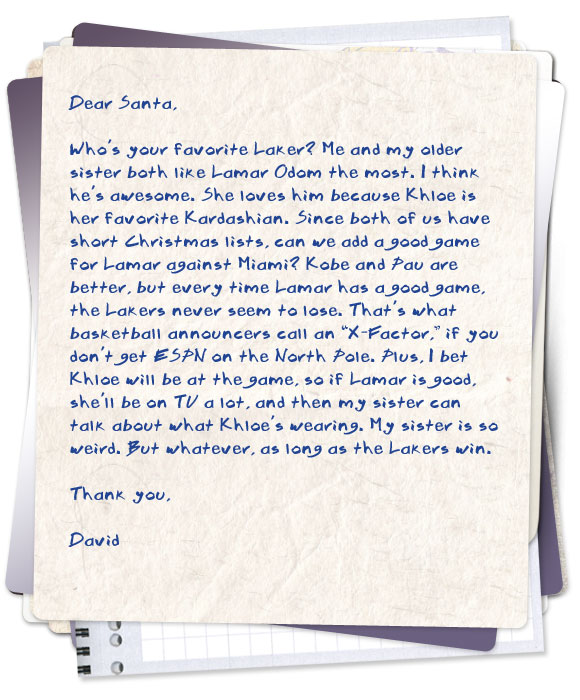 Dear Santa,
Who's your favorite Laker? Me and my older
sister both like Lamar Odom the most. I think
he's awesome. She loves him because Khloe is
her favorite Kardashian. Since both of us have
short Christmas lists, can we add a good game
for Lamar against Miami? Kobe and Pau are
better, but every time Lamar has a good game,
the Lakers never seem to lose. That's what
basketball announcers call an "X-Factor," if you
don't get ESPN on the North Pole. Plus, I bet
Khloe will be at the game, so if Lamar is good,
she'll be on TV a lot, and then my sister can
talk about what Khloe's wearing. My sister is so
weird. But whatever, as long as the Lakers win.
Thank you,
David